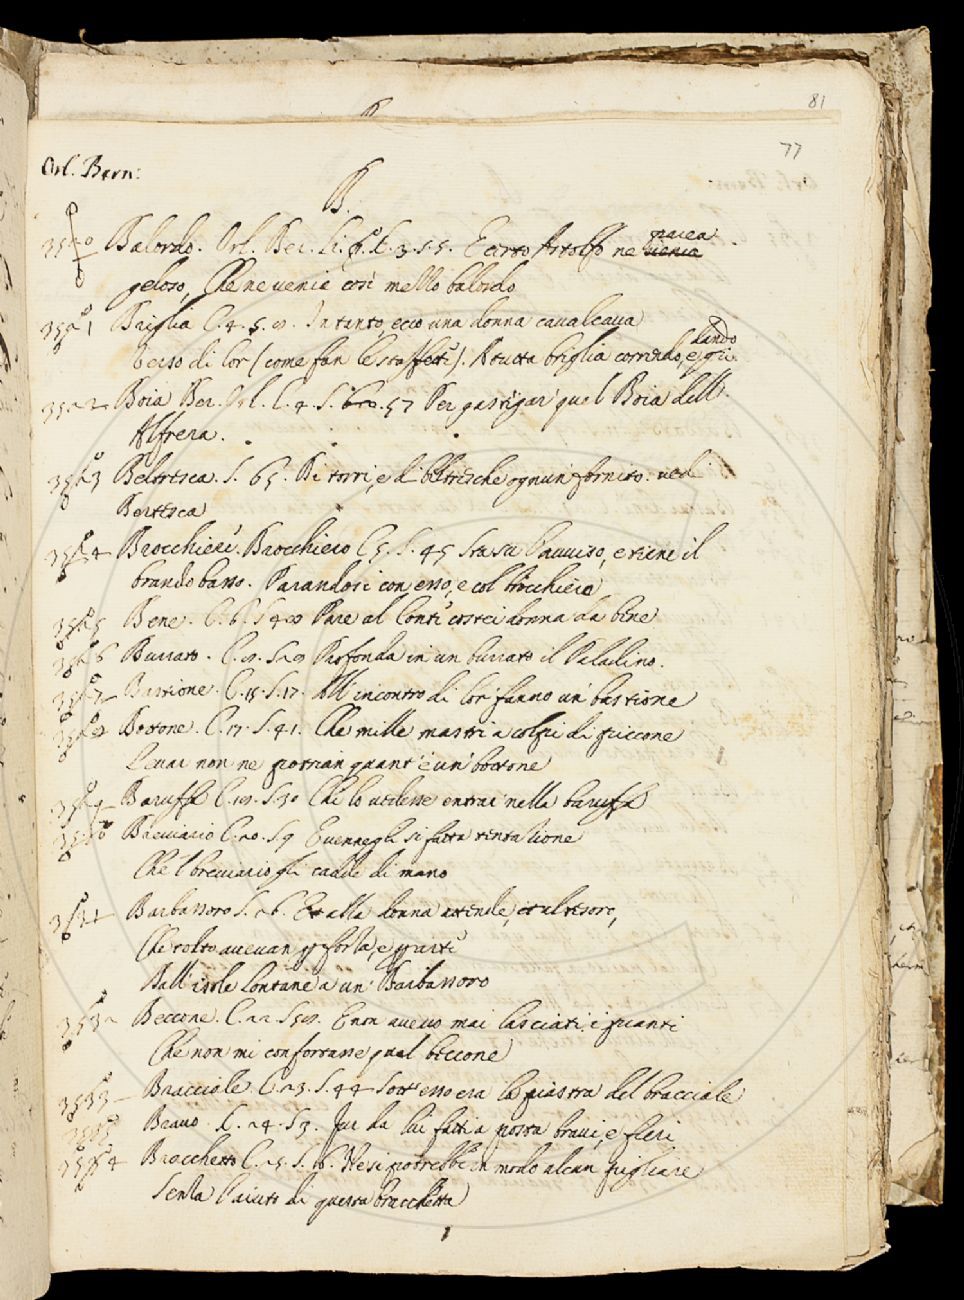 81
77
Orl. Bern:
B.
Balordo. Orl. Ber. Li. C. 3. S 5. E certo Astolfo ne pacea
geloso, Che ne venia così mezzo balordo
Briglia C. 4. 5. In tanto, ecco una donna cavalcava
Verso di lor (come fan le staffette). A tutta briglia correndo, e gri-dando
Boia Ber. Orl. C. 4. S. 57 Per gastigar quel Boia dell'
Alfrera.
Beltresca. S. 65. Di torri, e di beltresche ognun fornito. vedi
Bertesca
Brocchieri. Brocchiero C 5. S. 45 Stava l'avviso, e tiene il
brando basso. Parandosi con esso, e col brocchiero
Bene. C. 6. S 48 Pare al Conti costei donna da bene
Burrato. C. Profonda in un burrato il Paladino.
Bastione. C. 15. S. 17. All' incontro di lor fanno un bastione
Bottone. C. 17. S. 41. Che mille mastri a colpi di piccone
Levar non ne potrian quant' è un bottone
Baruffa C. S 30 Che lo volesse entrar nella baruffa
Breviario C. 20. S 9 Evennegli sì fatta tentazione
Che 'l breviario gli cadde di mano
Barbassoro S. 26. Et alla donna attende, et al tesoro,
Che tolto avevan per forza, e per arti
Dall' isole lontane a un Barbassoro
Beccone. C. 22 E non avevo mai lasciati i guanti
Che non mi confortasse qual beccone
Bracciale C. 23. S. 44 Sott' esso era la piastra del bracciale
Bravo. C. 24. S 3. Fur da lui fatti a posta bravi, e fieri
Brachetto C. 25. S. 6. Nesi potrebbe in modo alcun pigliare
Senza l'aiuto di questa bracchetta